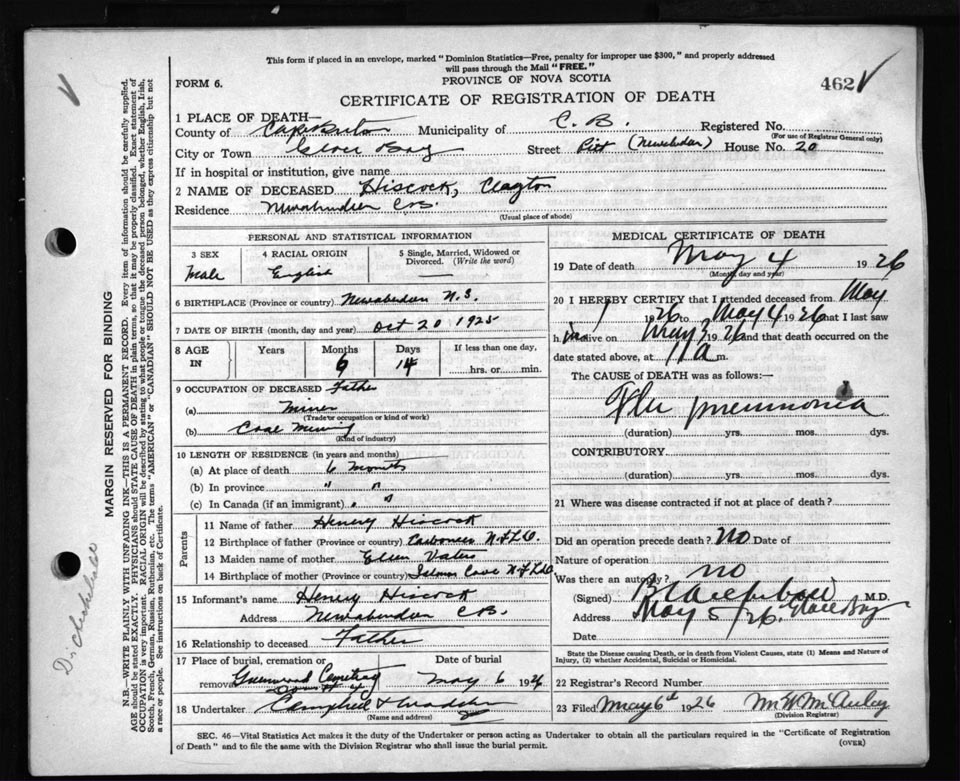 This form if placed in an envelope, marked "Dominion Statistics—Free, penalty for improper use $300," and properly addressed
will pass through the Mail "FREE."
FORM 6.
PROVINCE OF NOVA SCOTIA
462
CERTIFICATE OF REGISTRATION OF DEATH
1 PLACE OF DEATH—
County of Cape Breton Municipality of C. B. Registered No.
(For use of Registrar General only)
City or Town Glace Bay Street (Newabudan) House No. 20
If in hospital or institution, give name
2 NAME OF DECEASED Hiscock, Clayton
Residence C.B.
(Usual place of abode)
PERSONAL AND STATISTICAL INFORMATION
3 SEX 4 RACIAL ORIGIN 5 Single, Married, Widowed or Divorced. (Write the word)
Male English
6 BIRTHPLACE (Province or country) Newabudan N.S.
7 DATE OF BIRTH (month, day and year) Oct 20 1925
8 AGE IN Years Months Days If less than one day,
6 14 hrs. or min.
9 OCCUPATION OF DECEASED Father
(a) Miner
(Trade or occupation or kind of work)
(b) Coal Mining
(Kind of industry)
10 LENGTH OF RESIDENCE (in years and months)
(a) At place of death 6 Months
(b) In province " "
(c) In Canada (if an immigrant) " "
Parents
11 Name of father Henry Hiscock
12 Birthplace of father (Province or country) Carbonear N.F.L.D.
13 Maiden name of mother Ellen Vaters
14 Birthplace of mother (Province or country) Cove N.F.L.D
15 Informant's name Henry Hiscock
Address Newabudan C.B.
16 Relationship to deceased Father
17 Place of burial, cremation or removal Date of burial
Greenwood Cemetery May 6 1926
18 Undertaker Campbell &
(Name and address)
MEDICAL CERTIFICATE OF DEATH
19 Date of death May 4 1926
(Month, day and year)
20 I HEREBY CERTIFY that I attended deceased from May
1 1926 to May 4 1926 that I last saw
h im alive on May 3 1926 and that death occurred on the
date stated above, at 11 a m.
The CAUSE of DEATH was as follows:—
Flu pneumonia
(duration) yrs. mos. dys.
CONTRIBUTORY
(duration) yrs. mos. dys.
21 Where was disease contracted if not at place of death?
Did an operation precede death? No Date of
Nature of operation
Was there an autopsy? no
(Signed) M.D.
Address May 5/26. Glace Bay
Date
State the Disease causing Death, or in death from Violent Causes, state (1) Means and Nature of
Injury, (2) whether Accidental, Suicidal or Homicidal.
22 Registrar's Record Number
23 Filed May 6th 1926 M W McAulay
(Division Registrar)
SEC. 46—Vital Statistics Act makes it the duty of the Undertaker or person acting as Undertaker to obtain all the particulars required in the "Certificate of Registration
of Death" and to file the same with the Division Registrar who shall issue the burial permit.
(OVER)
MARGIN RESERVED FOR BINDING
N.B.—WRITE PLAINLY WITH UNFADING INK—THIS IS A PERMANENT RECORD. Every item of information should be carefully supplied.
AGE should be stated EXACTLY. PHYSICIANS should STATE CAUSE OF DEATH in plain terms, so that it may be properly classified. Exact statement of
OCCUPATION is very important. RACIAL ORIGIN will be described by stating to what people or tongue the deceased person belonged, whether English, Irish,
Scotch, French, German, Russian, Ruthenian, etc. The terms "AMERICAN" or "CANADIAN" SHOULD NOT BE USED as they express citizenship but not
a race or people. See instructions on back of Certificate.